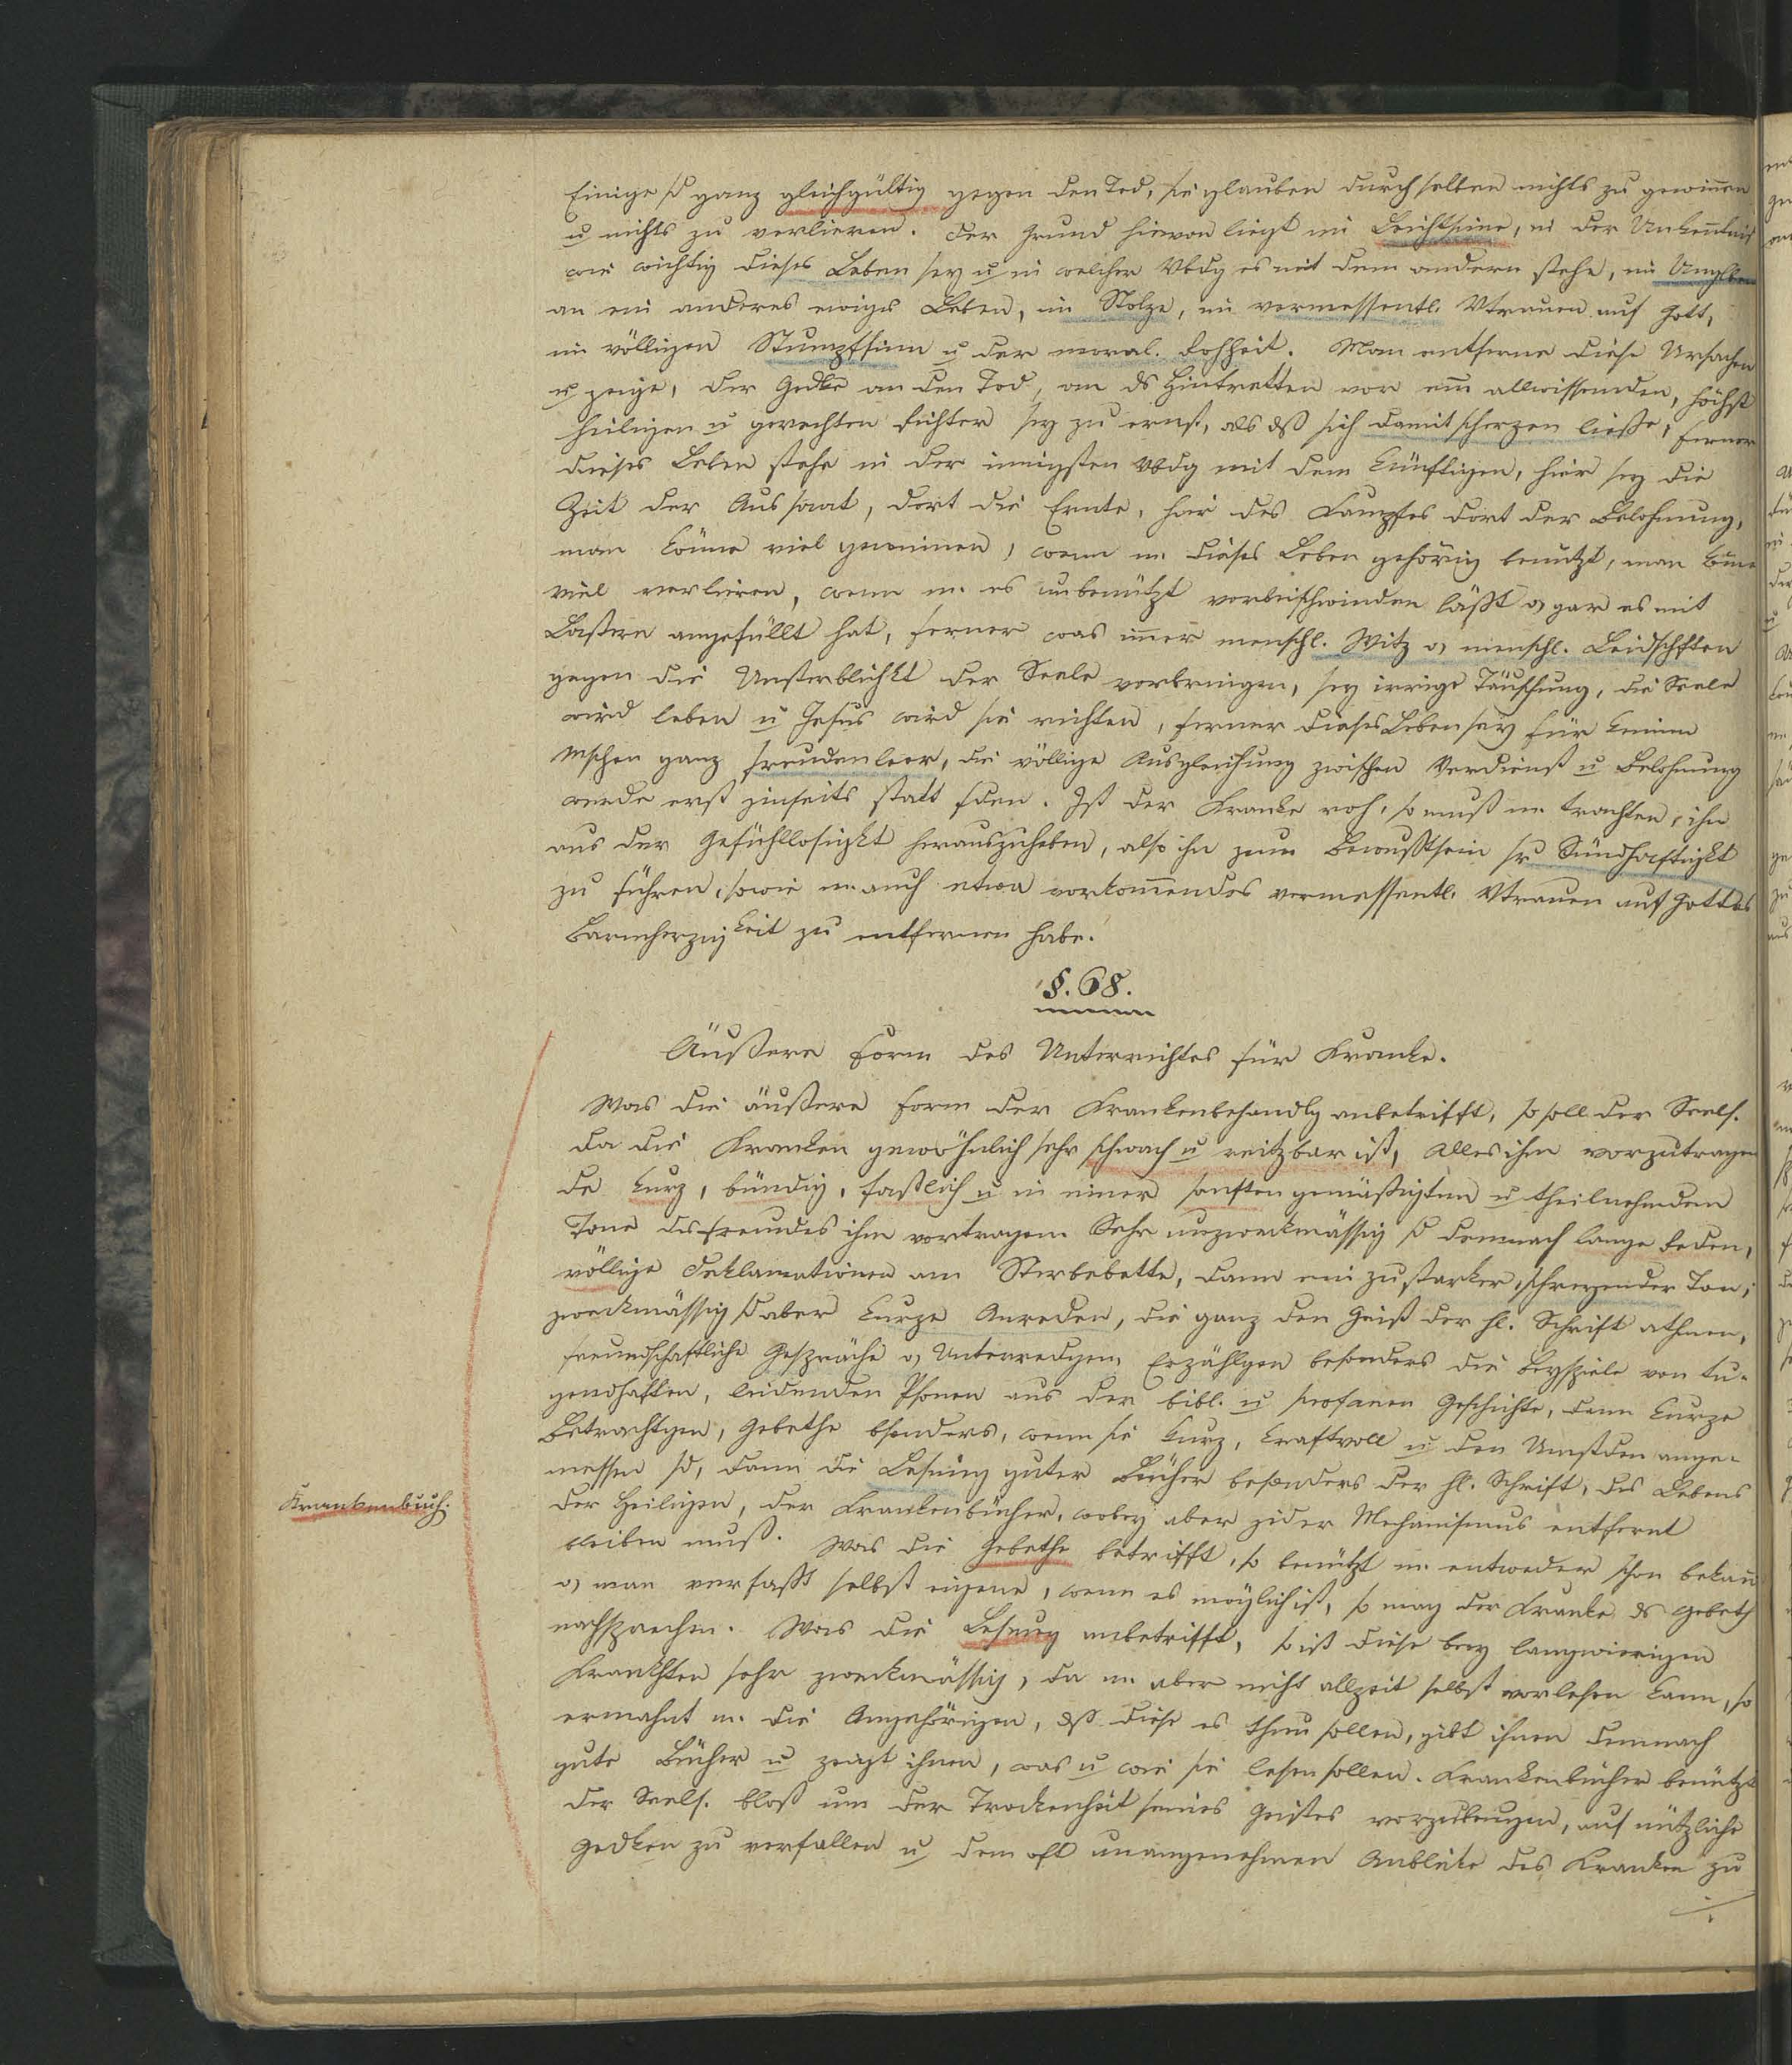 Einige sd ganz gleichgültig gegen den Tod, sie glauben durch selben nichts zu gewinnen
u nichts zu verlieren. Der Grund hievon liegt im Leichtsinne, in der Unkenntnis
wie wichtig dieses Leben sey u in welcher Vbdg es mit dem andern stehe, im Unglben
an ein anderes ewiges Leben, im Stolze, im vermessentl. Vtrauen auf Gott,
im völligen Stumpfsinn u der moral. Rohheit. Man entferne diese Ursachen
u zeige, der Gedke an den Tod, an ds Hintretten vor ein allwissenden, höchst
heiligen u gerechten Richter sey zu ernst, als dß sich damit scherzen ließe, ferner
dieses Leben stehe in der innigsten Vbdg mit dem künftigen, hier sey die
Zeit der Aussaat, dort die Ernte, hier des Kampfes dort der Belohnung,
man könne viel gewinnen, wenn m. dieses Leben gehörig benützt, man köne
viel verlieren, wenn m. es unbenützt vorbeischwinden läßt o gar es mit
Lastern angefüllt hat, ferner was imer menschl. Witz o menschl. Leidschften
gegen die Unsterblichkt der Seele vorbringen, sey irrige Täuschung, die Seele
wird leben u Jesus wird sie richten, ferner dieses Leben sey für keinen
Mschen ganz freudenleer, die völlige Ausgleichung zwischen Verdienst u Belohnung
werde erst jenseits statt fden. Ist der Kranke roh, so muß m. trachten, ihn
aus der Gefühllosigkt herauszuheben, also ihn zum Bewußtsein sr Sündhaftigkt
zu führen, sowie m. auch etwa vorkommendes vermessentl. Vtrauen auf Gottes
Barmherzigkeit zu entfernen habe.
§. 68.
Äußere Form des Unterrichtes für Kranke.
Was die äußere Form der Krankenbehandlg anbetrifft, so soll der Seels.
da die Kranken gewöhnlich sehr schwach u reitzbar ist, Alles ihm vorzutragen
de kurz, bündig, faßlich u in einer sanften gemäßigten u theilnehmenden
Tone des Freundes ihm vortragen. Sehr unzweckmässig sd demnach lange Reden,
völlige Deklamationen am Sterbebette, dann ein zu starker, schreyender Ton;
zweckmässig sd aber kurze Anreden, die ganz den Geist der hl. Schrift athmen,
freundschaftliche Gespräche o Unterredgen, Erzählgen besonders die Beyspiele von tu-
gendhaften, leidenden Psonen aus der bibl. u profanen Geschichte, dann kurze
Betrachtgen, Gebethe bsonders, wenn sie kurz, kraftvoll u den Umstden ange-
messen sd, dann die Lesung guter Bücher besonders der hl. Schrift, des Lebens
Krankenbuch.
der Heiligen, der Krankenbücher, wobey aber jeder Mechanismus entfernt
bleiben muß. Was die Gebethe betrifft, so benützt m. entweder schon bekan
o man verfaßt selbst eigene, wenn es möglich ist, so mag der Kranke ds Gebeth
nachsprechen. Was die Lesung anbetrifft, so ist diese bey langwierigen
Krankhten sehr zweckmässig, da m. aber nicht allzeit selbst vorlesen kann, so
ermahnt m. die Angehörigen, dß diese es thun sollen, gibt ihnen demnach
gute Bücher u zeigt ihnen, was u wie sie lesen sollen. Krankenbücher benützt
der Seels. bloß um der Trockenheit seines Geistes vorzubeugen, auf nützliche
Gedken zu verfallen u dem oft unangenehmen Anblicke des Kranken zu